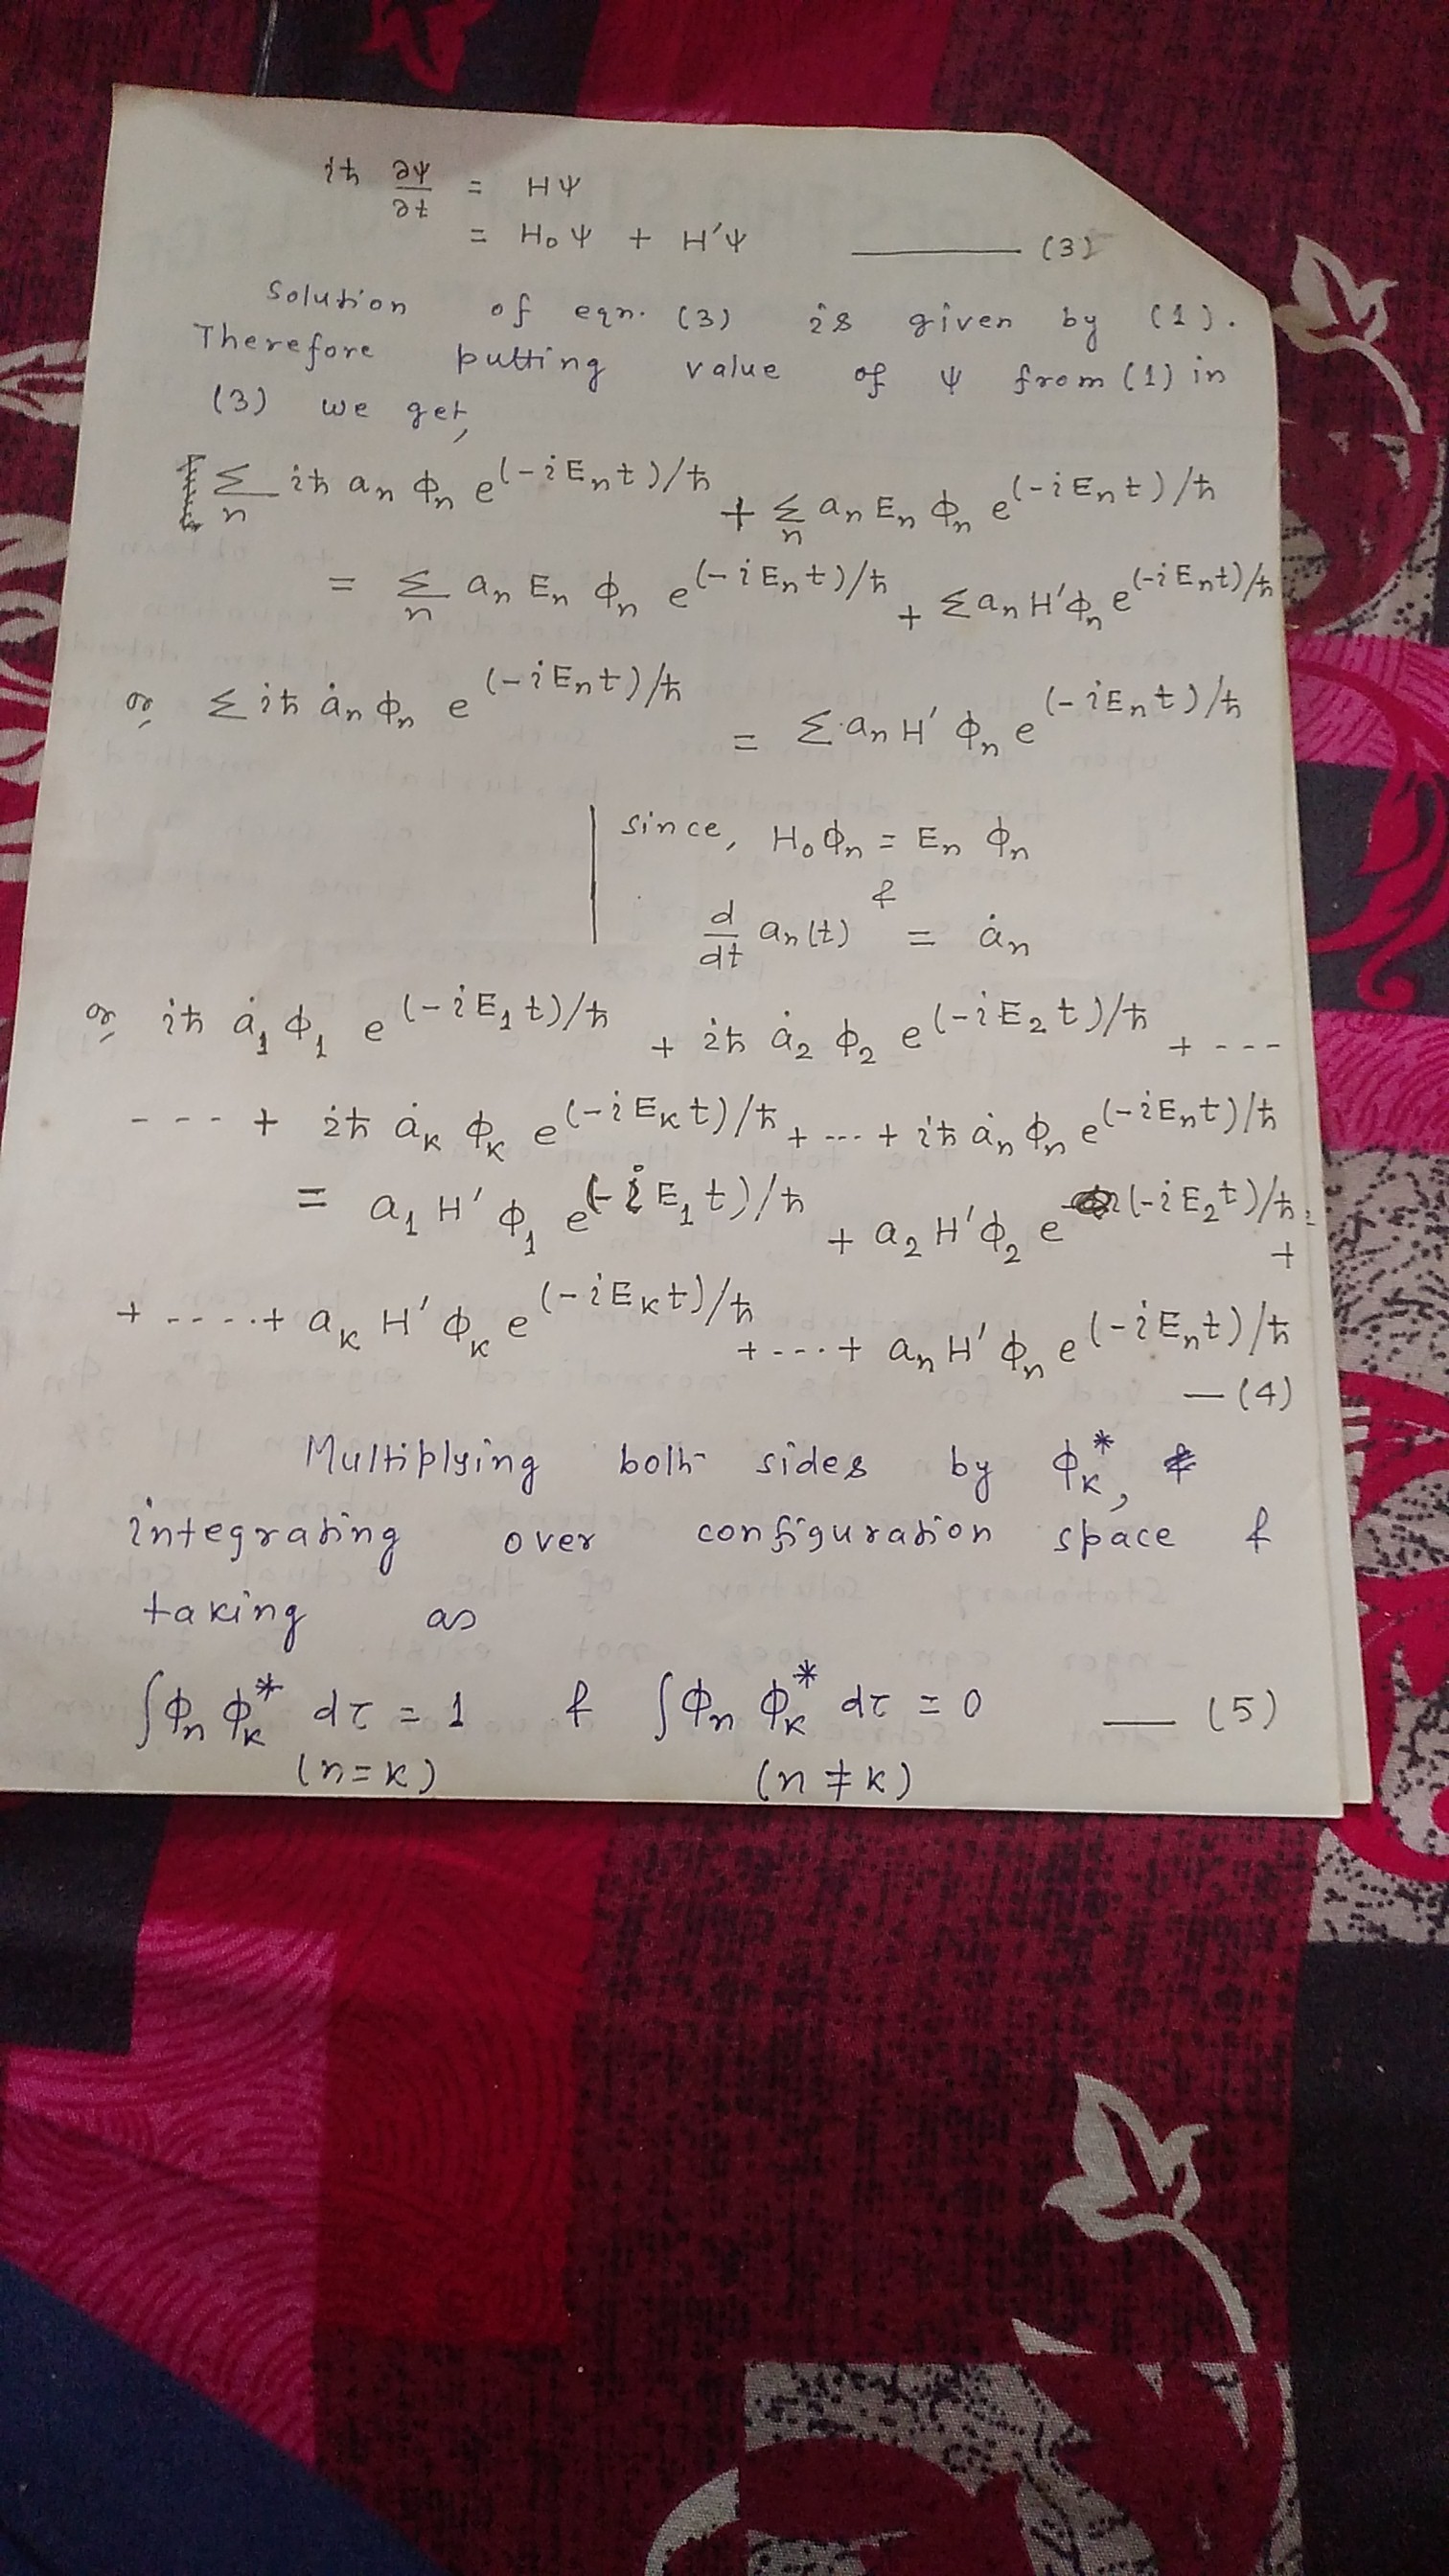 iħ ∂Ψ/∂t = HΨ
= H₀Ψ + H'Ψ ——— (3)
Solution of eqn. (3) is given by (1).
Therefore putting value of Ψ from (1) in
(3) we get,
Σₙ iħ aₙ ϕₙ e^(-iEₙt)/ħ + Σₙ aₙ Eₙ ϕₙ e^(-iEₙt)/ħ
= Σₙ aₙ Eₙ ϕₙ e^(-iEₙt)/ħ + Σ aₙ H'ϕₙ e^(-iEₙt)/ħ
or, Σ iħ ȧₙ ϕₙ e^(-iEₙt)/ħ = Σ aₙ H' ϕₙ e^(-iEₙt)/ħ
since, H₀ϕₙ = Eₙ ϕₙ
&
d/dt aₙ(t) = ȧₙ
or, iħ ȧ₁ ϕ₁ e^(-iE₁t)/ħ + iħ ȧ₂ ϕ₂ e^(-iE₂t)/ħ + ---
--- + iħ ȧ_K ϕ_K e^(-iE_K t)/ħ + --- + iħ ȧₙ ϕₙ e^(-iEₙt)/ħ
= a₁ H' ϕ₁ e^(-iE₁t)/ħ + a₂ H'ϕ₂ e^(-iE₂t)/ħ +
+ ----+ a_K H' ϕ_K e^(-iE_K t)/ħ + ---+ aₙ H' ϕₙ e^(-iEₙt)/ħ
— (4)
Multiplying both sides by ϕ_K*,
integrating over configuration space &
taking as
∫ϕₙ ϕ_K* dτ = 1 & ∫ϕₙ ϕ_K* dτ = 0 — (5)
(n = K) (n ≠ K)